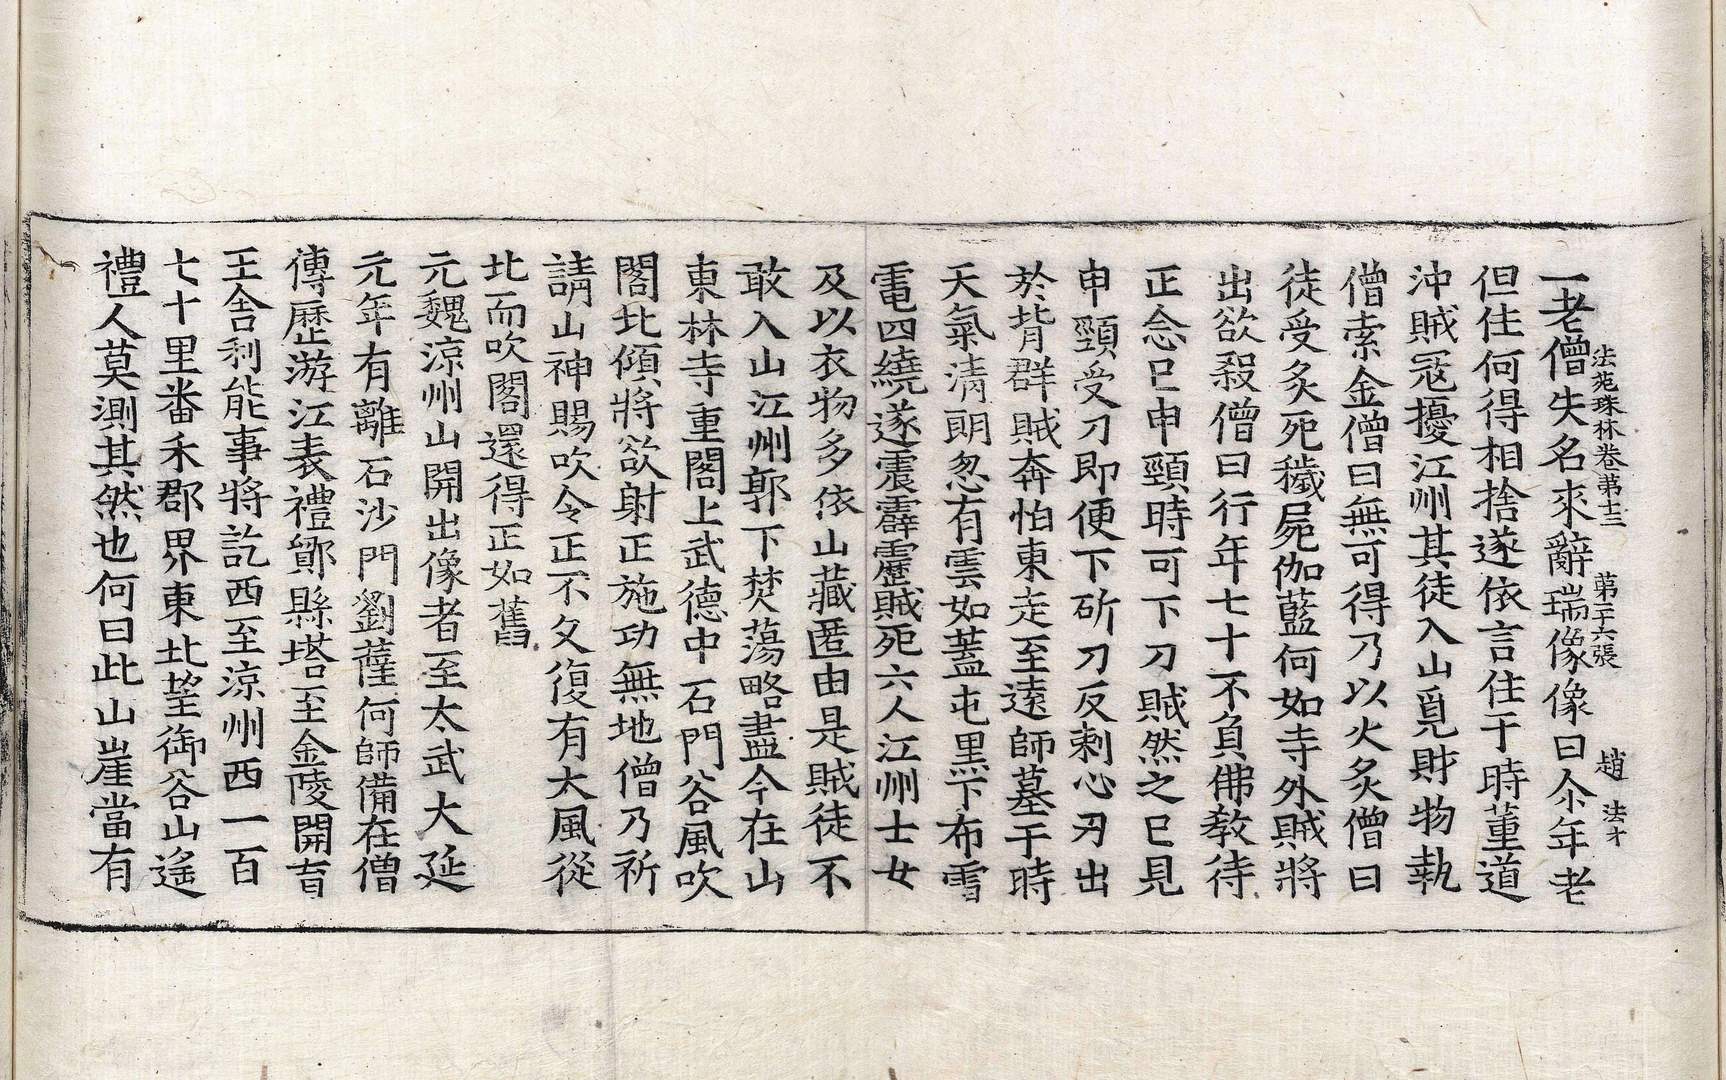 法苑珠林卷第十三　第二十六張　趙　法才
一老僧失名來辭瑞像像曰尒年老
但住何得相捨遂依言住于時董道
沖賊冦擾江州其徒入山覓財物執
僧索金僧曰無可得乃以火炙僧曰
徒受炙死穢屍伽藍何如寺外賊將
出欲殺僧曰行年七十不負佛教待
正念已申頸時可下刀賊然之已見
申頸受刀即便下斫刀反刺心刃出
於背群賊奔怕東走至遠師墓于時
天氣清朗忽有雲如蓋屯黑下布雪
電四繞遂震霹靂賊死六人江州士女
及以衣物多依山藏匿由是賊徒不
敢入山江州郭下焚蕩略盡今在山
東林寺重閣上武德中石門谷風吹
閣北傾將欲射正施功無地僧乃祈
請山神賜吹令正不久復有大風從
北而吹閣還得正如舊
元魏涼州山開出像者至太武大延
元年有離石沙門劉薩何師備在僧
傳歷游江表禮鄮縣塔至金陵開育
王舍利能事將訖西至涼州西一百
七十里番禾郡界東北望御谷山遙
禮人莫測其然也何曰此山崖當有